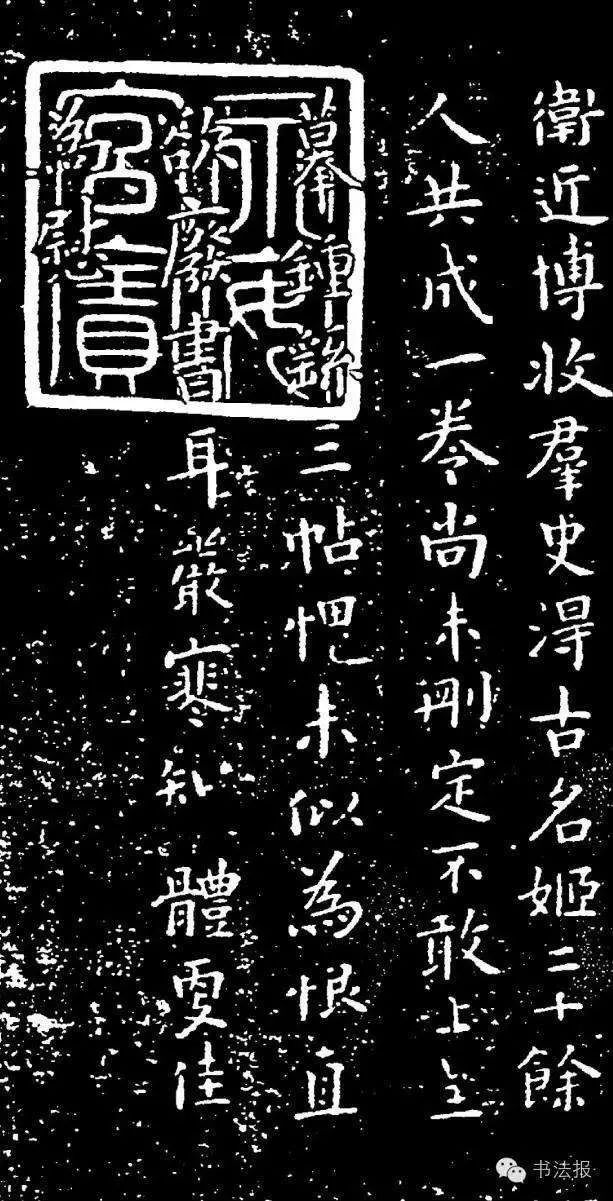 衛近博收羣史得古名姬二十餘
人共成一卷尚未刪定不敢上
摹鍾繇三帖未似為恨直
欲廢書耳嚴寒知體佳
慰
书法报